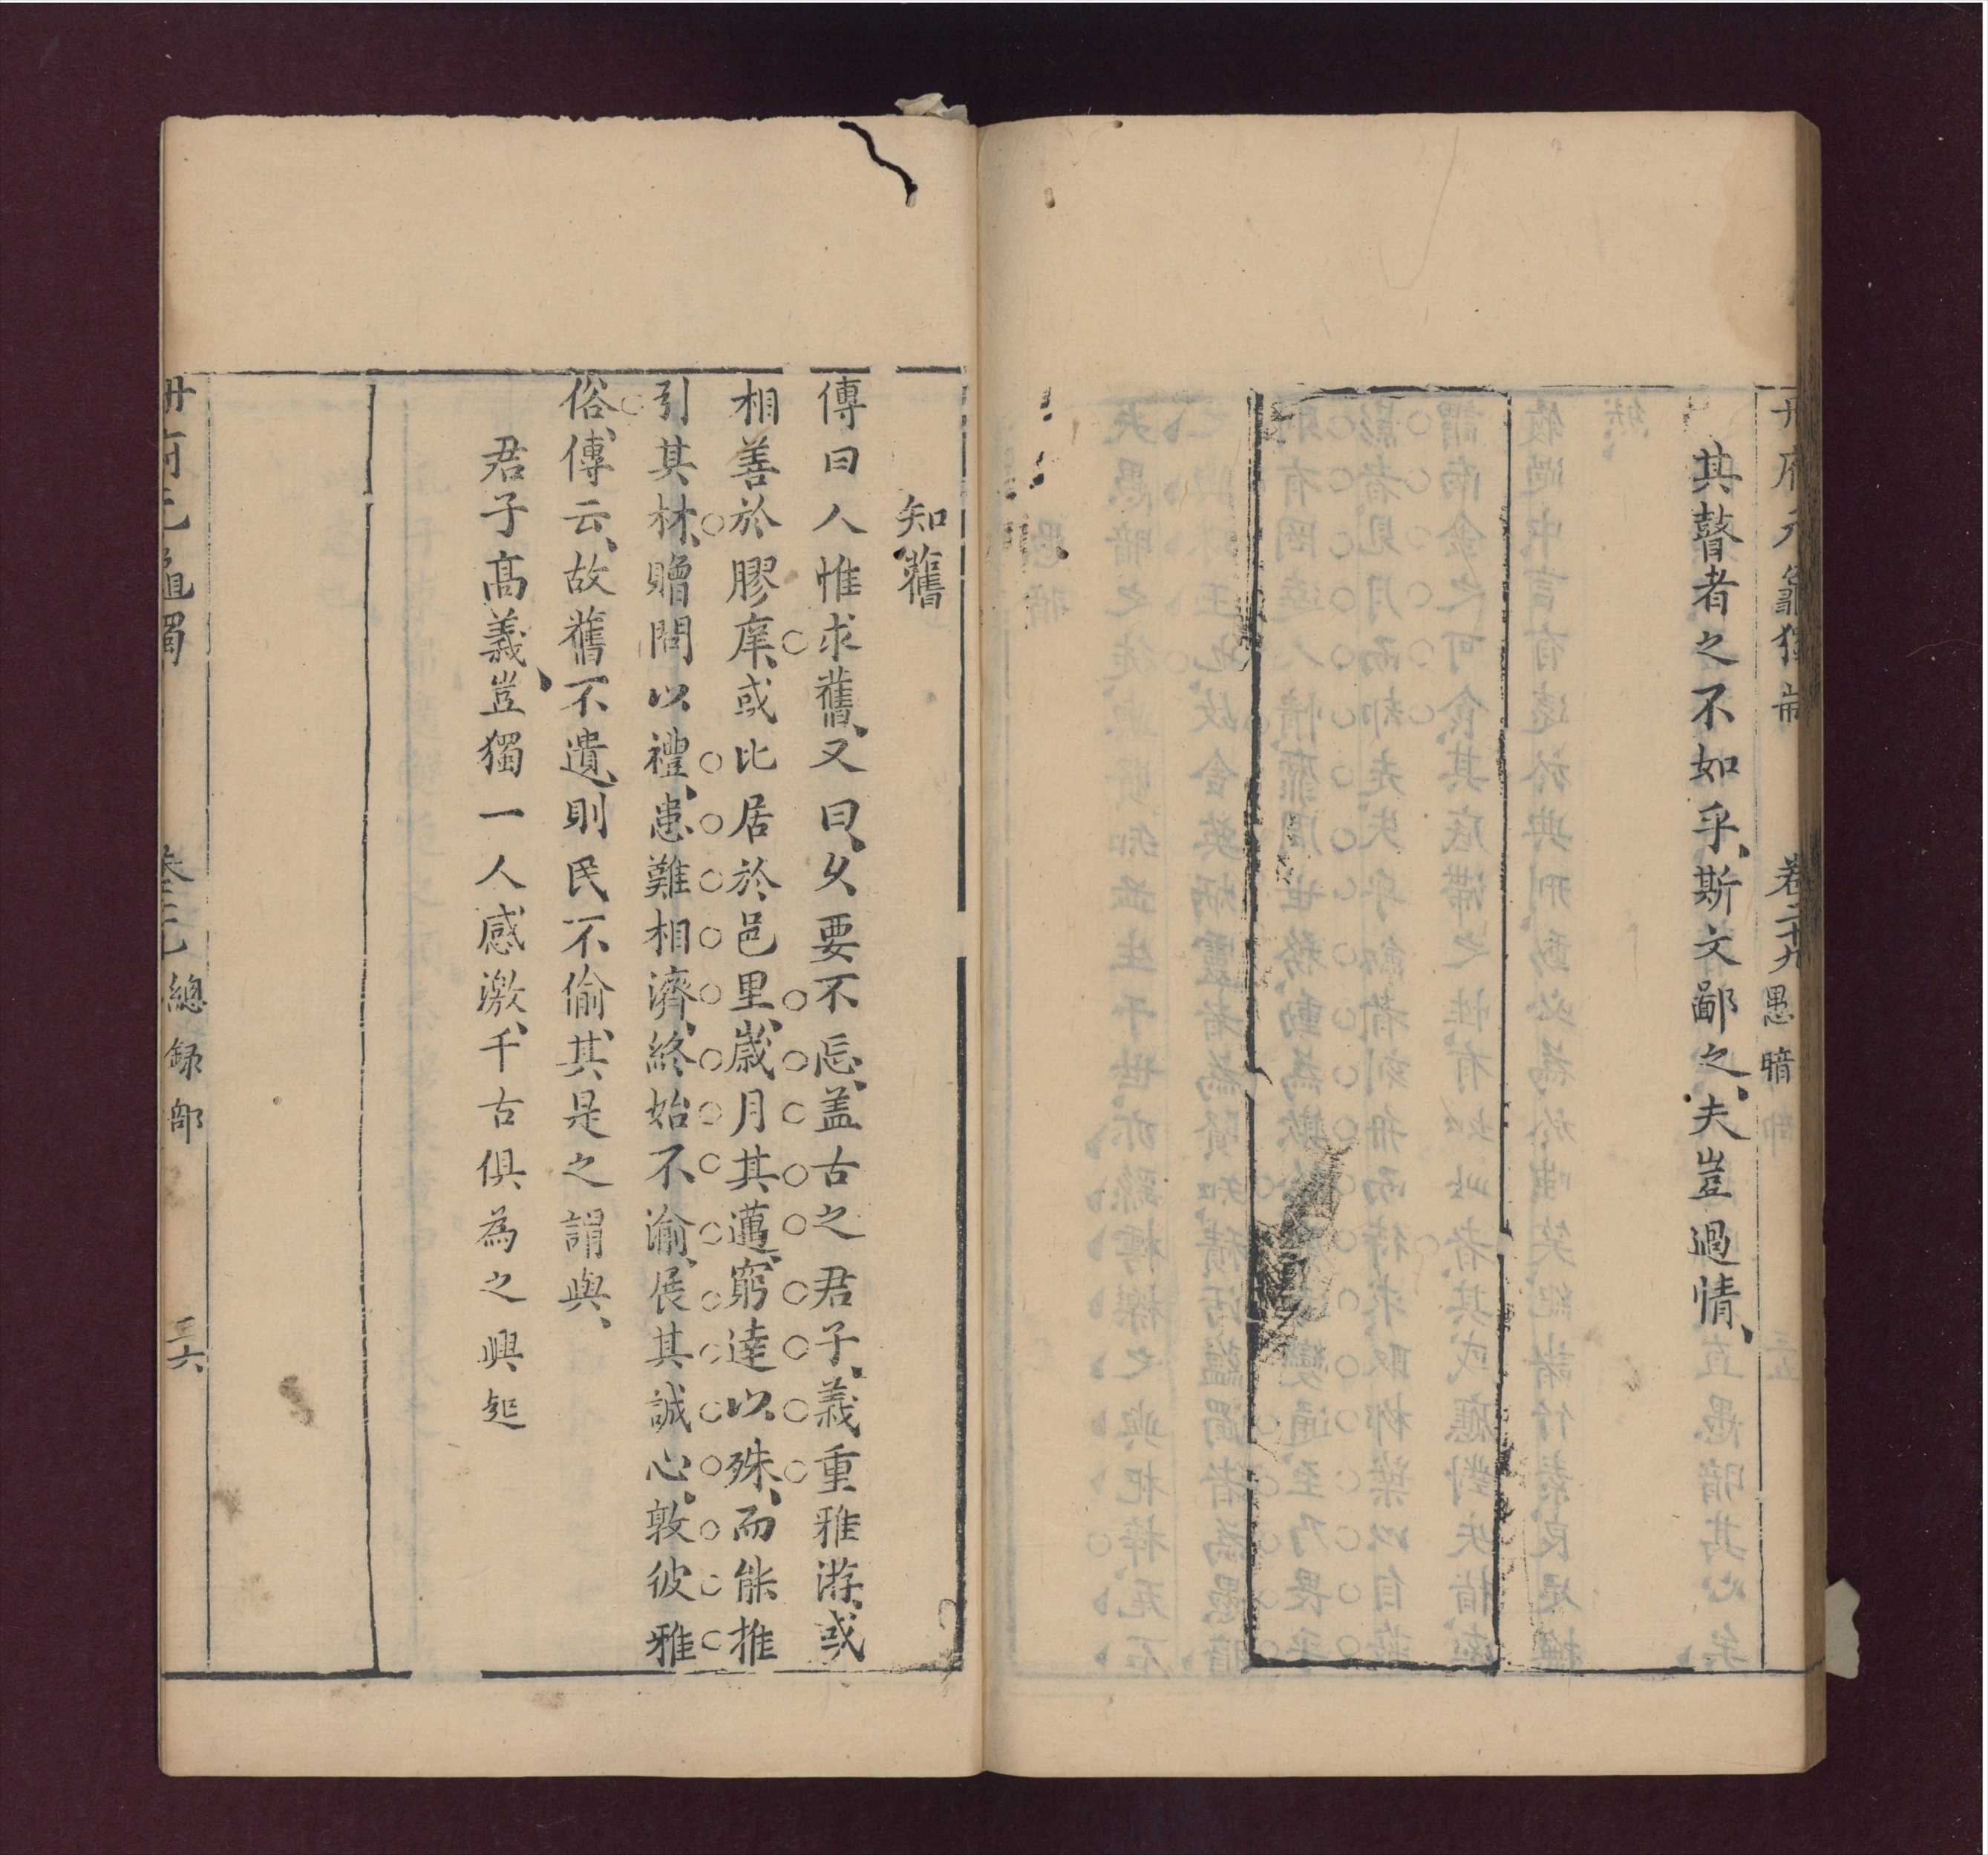 卷二十九愚暗
其瞽者之不如乎斯文鄙之夫豈過情
知舊
傳曰人惟求舊又曰乆要不忘盖古之君子義重雅游或
相善於膠庠或比居於邑里歲月其邁窮達以殊而能推
引其材贈問以禮患難相濟終始不渝展其誠心敦彼雅
俗傳云故舊不遺則民不偷其是之謂與
君子高義豈獨一人感激千古俱為之興起
總録部
三六